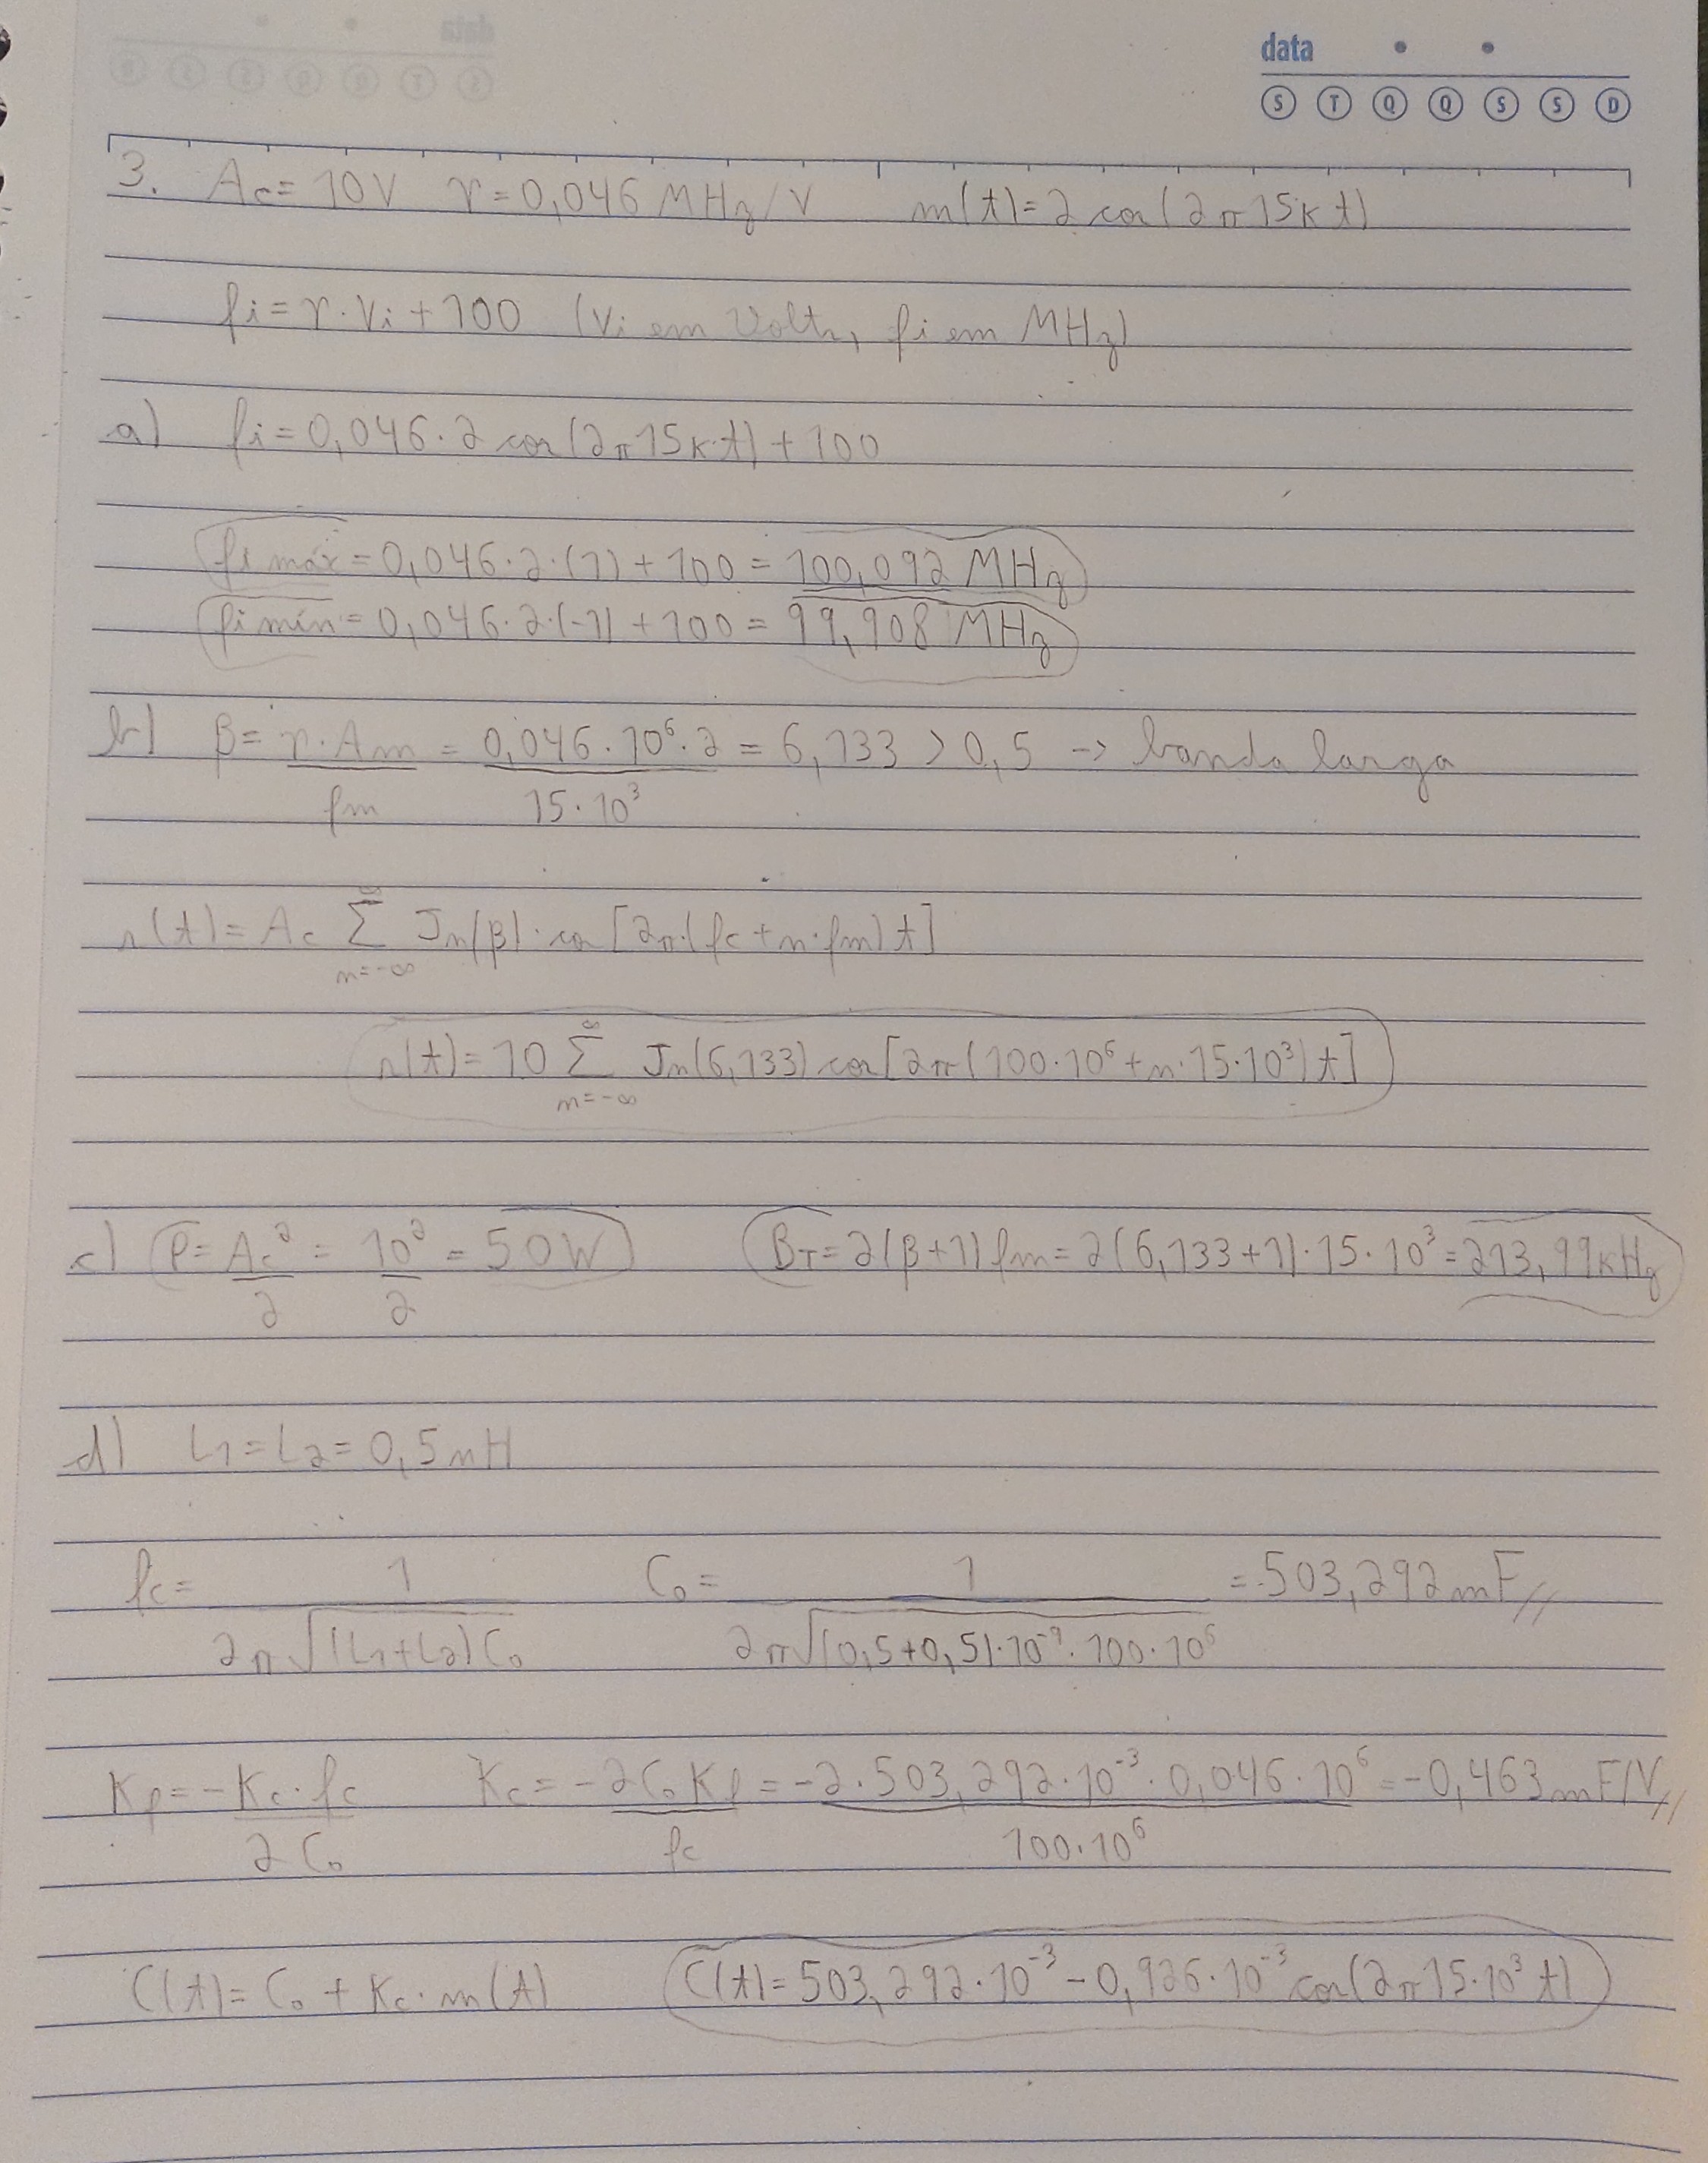 data
S T Q Q S S D
3. Ac = 10V γ = 0,046 MHz/V m(t) = 2 cos(2π15kt)
fi = γ·Vi + 100 (Vi em Volts, fi em MHz)
a) fi = 0,046·2 cos(2π15k·t) + 100
fi máx = 0,046·2·(1) + 100 = 100,092 MHz
fi mín = 0,046·2·(-1) + 100 = 99,908 MHz
b) β = γ·Am/fm = 0,046·10⁶·2/15·10³ = 6,133 > 0,5 → banda larga
s(t) = Ac ∑_{n=-∞}^{∞} Jn(β)·cos[2π·(fc + n·fm)t]
s(t) = 10 ∑_{n=-∞}^{∞} Jn(6,133) cos[2π(100·10⁶ + n·15·10³)t]
c) P = Ac²/2 = 10²/2 = 50W BT = 2(β+1)fm = 2(6,133+1)·15·10³ = 213,99kHz
d) L1 = L2 = 0,5nH
fc = 1/2π√(L1+L2)C₀ C₀ = 1/2π√(0,5+0,5)·10⁻⁹·100·10⁶ = 503,292mF//
Kf = -Kc·fc/2C₀ Kc = -2C₀Kf/fc = -2·503,292·10⁻³·0,046·10⁶/100·10⁶ = -0,463mF/V//
C(t) = C₀ + Kc·m(t) C(t) = 503,292·10⁻³ - 0,926·10⁻³ cos(2π15·10³t)